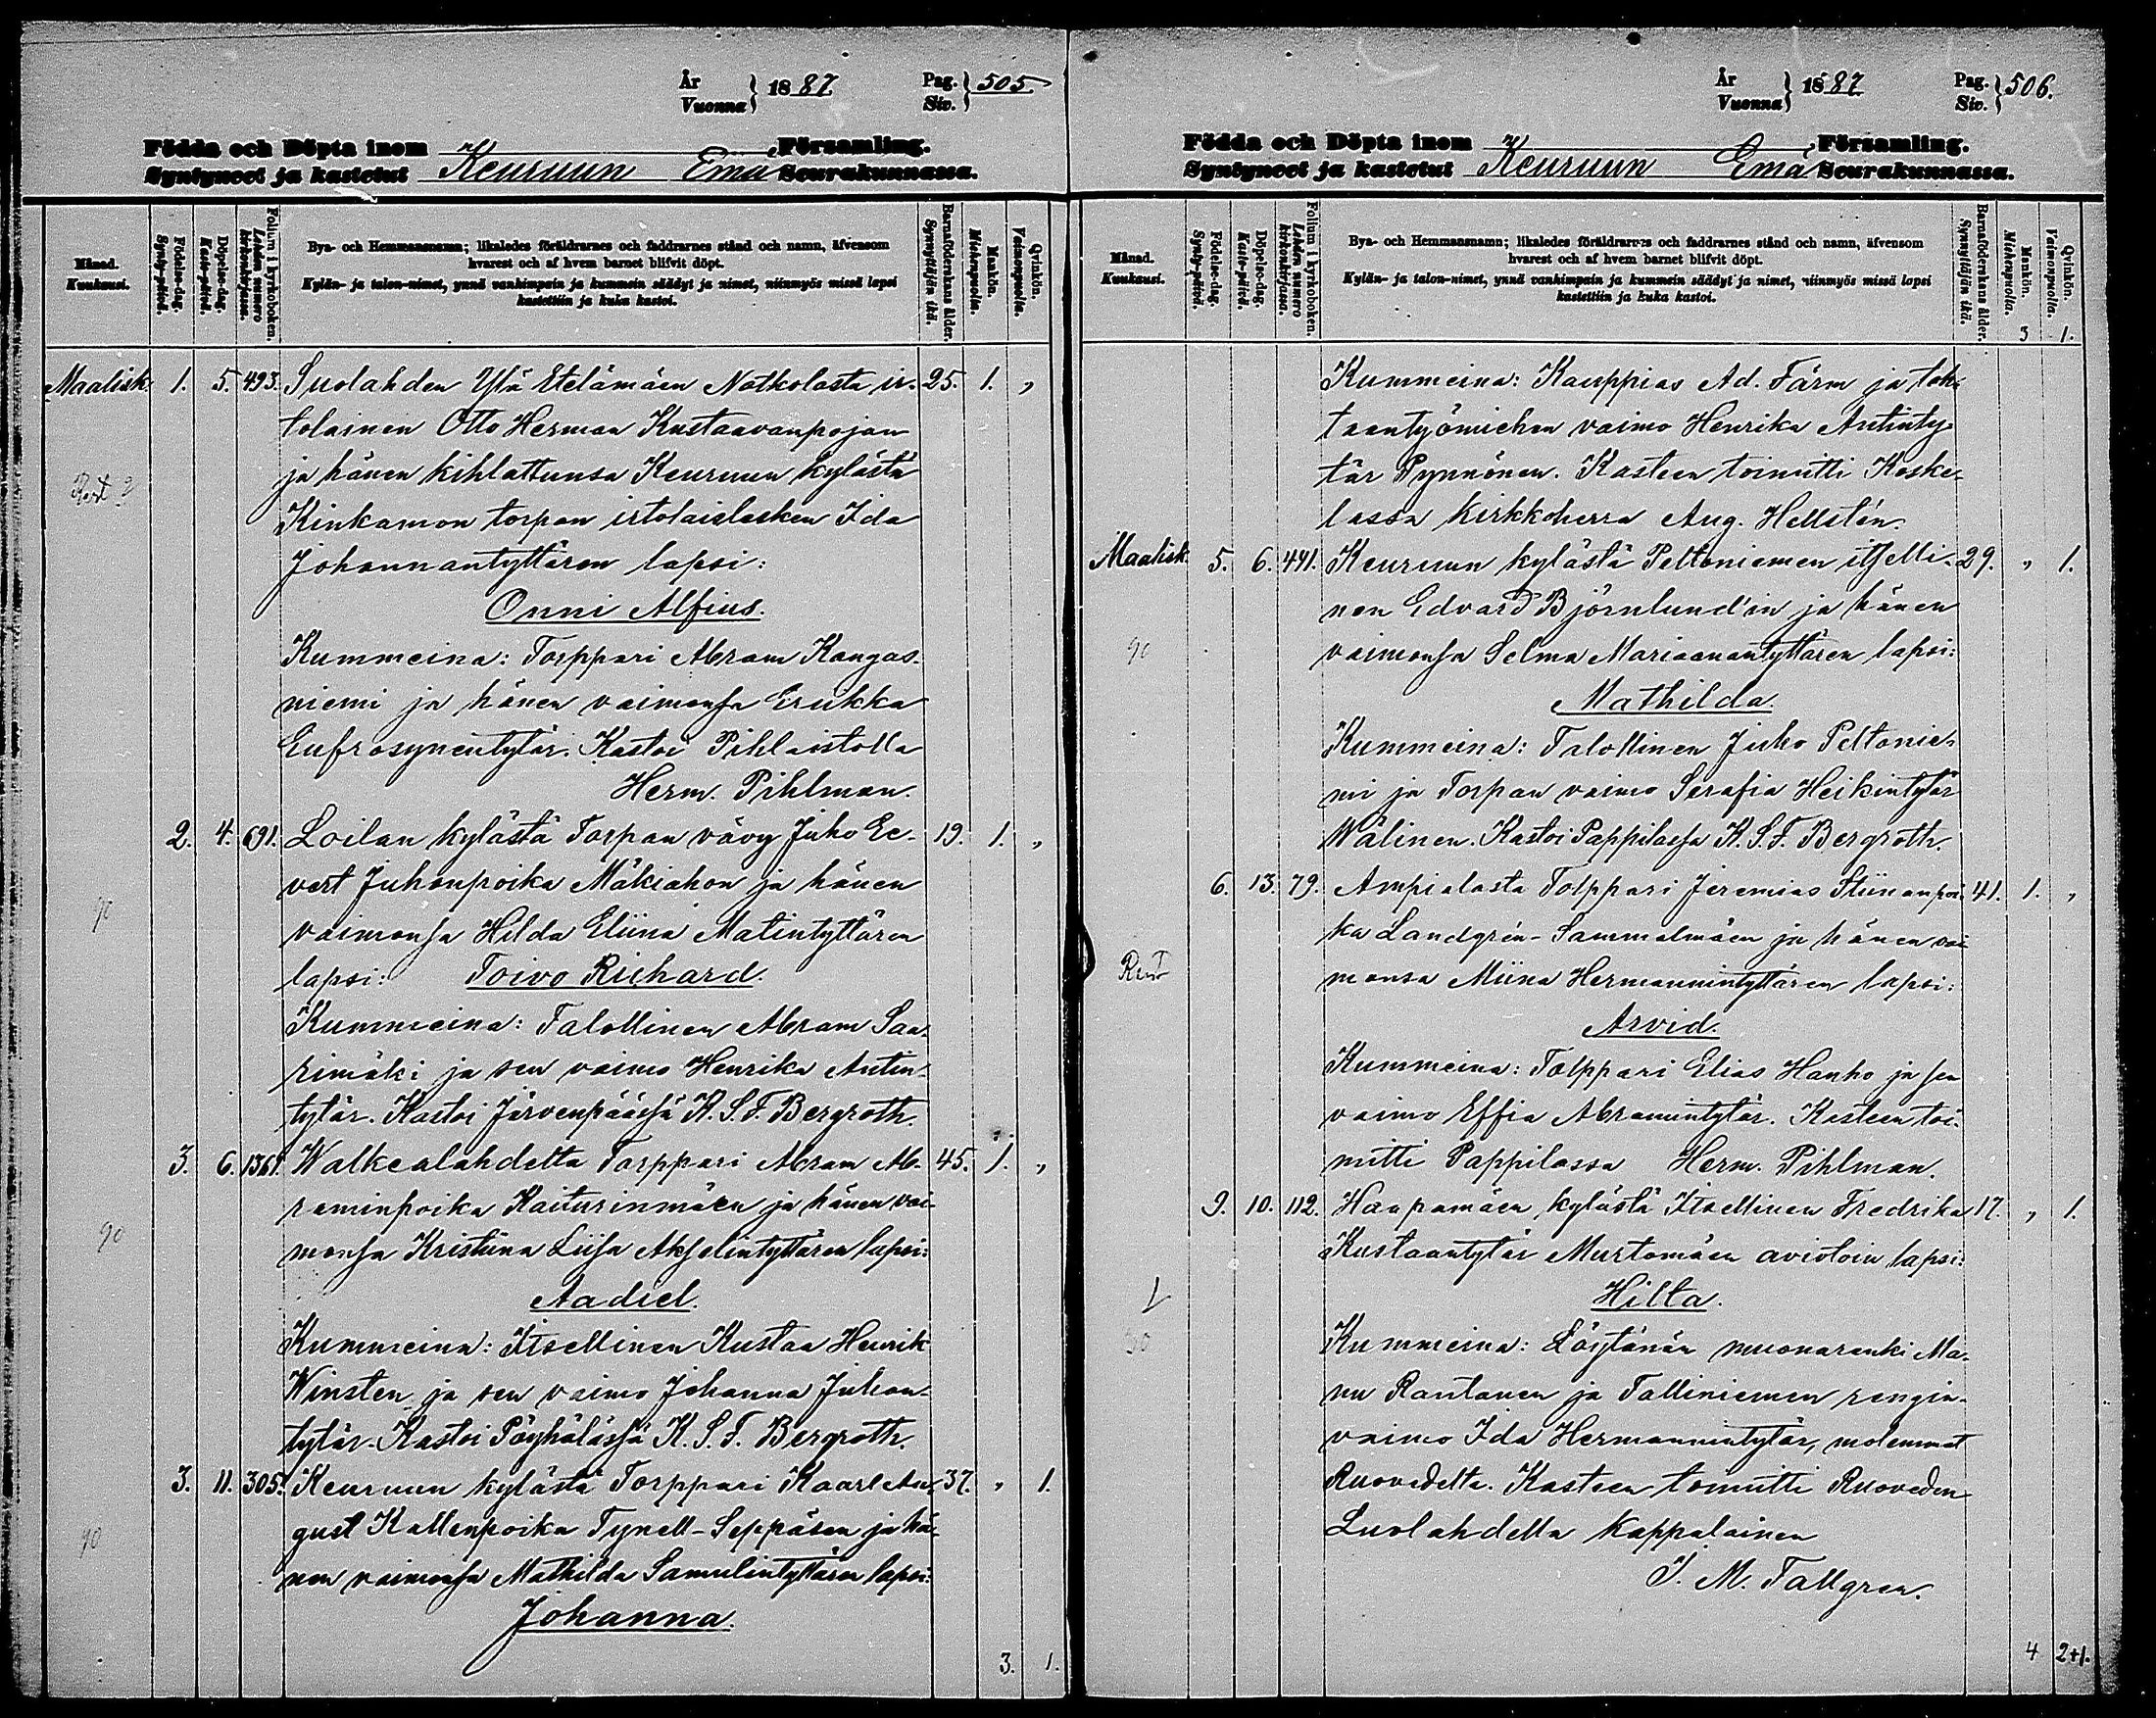 År
Vuonna } 1887. Pag.
Siv. } 505.
Födda och Döpta inom Församling.
Syntyneet ja kastetut Keuruun Emä Seurakunnassa.
Månad.
Kuukausi.
Födelse-dag.
Synty-päivä.
Döpelse-dag.
Kaste-päivä.
Folium i kyrkoboken.
Lehden numero
kirkonkirjassa.
Bya- och Hemmansnamn; likaledes föräldrarnes och faddrarnes stånd och namn, äfvensom
hvarest och af hvem barnet blifvit döpt.
Kylän- ja talon-nimet, ynnä vanhimpain ja kummein säädyt ja nimet, niinmyös missä lapsi
kastettiin ja kuka kastoi.
Barnaföderskans ålder.
Synnyttäjän ikä.
Mankön.
Miehenpuolia.
Qvinkön.
Vaimonpuolia.
Maalisk. 1. 5. 493. Suolahden Ylä Etelämäen Notkolasta ir- 25. 1. „
tolainen Otto Herman Kustaavanpojan
ja hänen kihlattunsa Keuruun kylästä
Kinkamon torpan irtolaislesken Ida
Johannantyttären lapsi:
Onni Alfius.
Kummeina: Torppari Abram Kangas-
niemi ja hänen vaimonsa Erukka
Eufrosynentytär. Kastoi Pihlaistolla
Herm. Pihlman.
2. 4. 691. Loilan kylästä Torpan vävy Juho Ee- 19. 1. „
vert Juhonpoika Mäkiahon ja hänen
90
vaimonsa Hilda Eliina Matintyttären
lapsi: Toivo Richard.
Kummeina: Talollinen Abram Saa-
rimäki ja sen vaimo Henrika Antin-
tytär. Kastoi Järvenpäässä K. S. F. Bergroth.
3. 6. 1361. Walkealahdelta Torppari Abram Ab- 45. 1. „
raminpoika Kaiturinmäen ja hänen vai-
90
monsa Kristiina Liisa Akselintyttären lapsi:
Aadiel.
Kummeina: Itsellinen Kustaa Henrik
Winsten ja sen vaimo Johanna Juhon-
tytär. Kastoi Pöyhölässä K. S. F. Bergroth.
3. 11. 305. Keuruun kylästä Torppari Kaarle Au- 37. „ 1.
gust Kallenpoika Tynell-Seppäsen ja hä-
90
nen vaimonsa Mathilda Samulintyttären lapsi:
Johanna.
3. 1.
År
Vuonna } 1887 Pag.
Siv. } 506.
Födda och Döpta inom Församling.
Syntyneet ja kastetut Keuruun Emä Seurakunnassa.
Månad.
Kuukausi.
Födelse-dag.
Synty-päivä.
Döpelse-dag.
Kaste-päivä.
Folium i kyrkoboken.
Lehden numero
kirkonkirjassa.
Bya- och Hemmansnamn; likaledes föräldrarnes och faddrarnes stånd och namn, äfvensom
hvarest och af hvem barnet blifvit döpt.
Kylän- ja talon-nimet, ynnä vanhimpain ja kummein säädyt ja nimet, niinmyös missä lapsi
kastettiin ja kuka kastoi.
Barnaföderskans ålder.
Synnyttäjän ikä.
Mankön.
Miehenpuolia.
Qvinkön.
Vaimonpuolia.
3 1.
Kummeina: Kauppias Ad. Färm ja teh-
taantyömiehen vaimo Henrika Antinty-
tär Pynnönen. Kasteen toimitti Koske-
lassa Kirkkoherra Aug. Hellstén.
Maalisk. 5. 6. 441. Keuruun kylästä Peltoniemen itselli- 29. „ 1.
nen Edvard Björnlund'in ja hänen
90
vaimonsa Selma Mariaanantyttären lapsi:
Mathilda.
Kummeina: Talollinen Juho Peltonie-
mi ja Torpan vaimo Serafia Heikintytär
Wälinen. Kastoi Pappilassa K. S. F. Bergroth.
6. 13. 79. Ampialasta Torppari Jeremias Stiinanpoi- 41. 1. „
ka Landgrén-Sammalmäen ja hänen vai-
monsa Miina Hermannintyttären lapsi:
Arvid.
Kummeina: Torppari Elias Hanho ja sen
vaimo Effia Abramintytär. Kasteen toi-
mitti Pappilassa Herm. Pihlman.
9. 10. 112. Haapamäen kylästä Itsellinen Fredrika 17. „ 1.
Kustaantytär Murtomäen aviotoin lapsi:
Hilta.
Kummeina: Löytänän muonarenki Ma-
nu Rantanen ja Talliniemen rengin-
vaimo Ida Hermannintytär, molemmat
Ruovedelta. Kasteen toimitti Ruoveden
Luolahdella Kappalainen
I. M. Tallgren.
4 2+1.